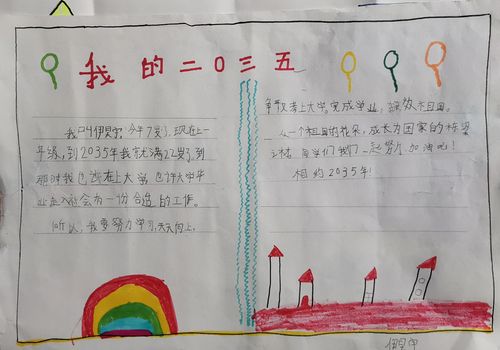 我的二〇三五
我叫伊見宁,今年7岁了,现在上一
年级,到2035年我就满22岁了,到
那时我已经在上大学,也许大学毕
业走入社会有一份合适的工作。
所以,我要努力学习,天天向上,
争取考上大学,完成学业,报效祖国。
从一个祖国的花朵,成长为国家的栋梁
之材,同学们我们一起努力,加油吧!
相约2035年!